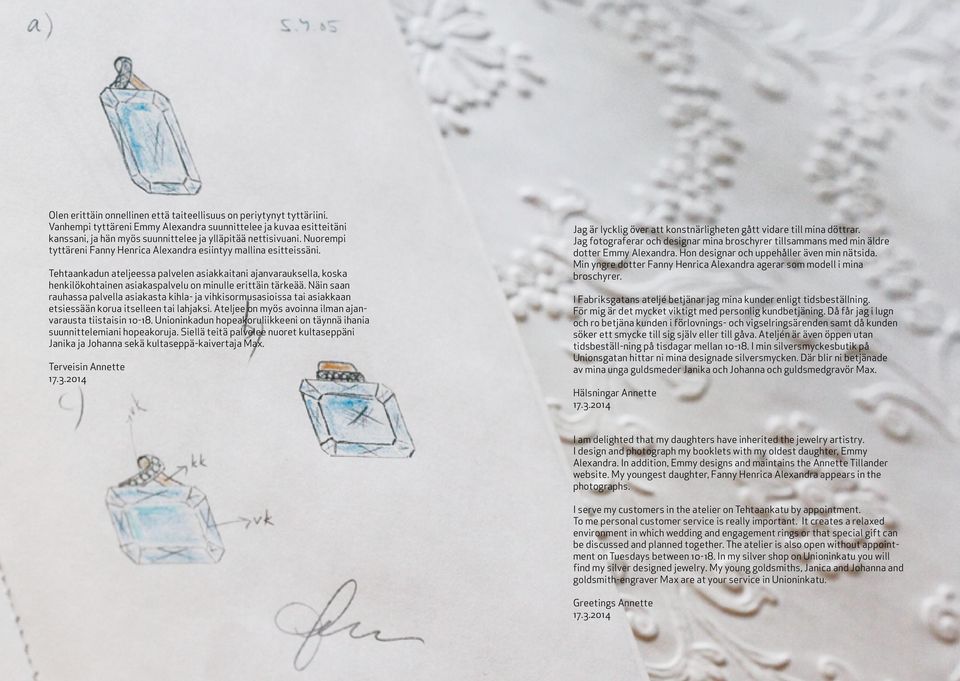 a)
5.4.05
Olen erittäin onnellinen että taiteellisuus on periytynyt tyttäriini.
Vanhempi tyttäreni Emmy Alexandra suunnittelee ja kuvaa esitteitäni
kanssani, ja hän myös suunnittelee ja ylläpitää nettisivuani. Nuorempi
tyttäreni Fanny Henrica Alexandra esiintyy mallina esitteissäni.
Tehtaankadun ateljeessa palvelen asiakkaitani ajanvarauksella, koska
henkilökohtainen asiakaspalvelu on minulle erittäin tärkeää. Näin saan
rauhassa palvella asiakasta kihla- ja vihkisormusasioissa tai asiakkaan
etsiessään korua itselleen tai lahjaksi. Ateljee on myös avoinna ilman ajan-
varausta tiistaisin 10-18. Unioninkadun hopeakoruliikkeeni on täynnä ihania
suunnittelemiani hopeakoruja. Siellä teitä palvelee nuoret kultaseppäni
Janika ja Johanna sekä kultaseppä-kaivertaja Max.
Terveisin Annette
17.3.2014
b)
c)
vk
kk
vk
Jag är lycklig över att konstnärligheten gått vidare till mina döttrar.
Jag fotograferar och designar mina broschyrer tillsammans med min äldre
dotter Emmy Alexandra. Hon designar och uppehåller även min nätsida.
Min yngre dotter Fanny Henrica Alexandra agerar som modell i mina
broschyrer.
I Fabriksgatans ateljé betjänar jag mina kunder enligt tidsbeställning.
För mig är det mycket viktigt med personlig kundbetjäning. Då får jag i lugn
och ro betjäna kunden i förlovnings- och vigselringsärenden samt då kunden
söker ett smycke till sig själv eller till gåva. Ateljén är även öppen utan
tidsbeställ-ning på tisdagar mellan 10-18. I min silversmyckesbutik på
Unionsgatan hittar ni mina designade silversmycken. Där blir ni betjänade
av mina unga guldsmeder Janika och Johanna och guldsmedgravör Max.
Hälsningar Annette
17.3.2014
I am delighted that my daughters have inherited the jewelry artistry.
I design and photograph my booklets with my oldest daughter, Emmy
Alexandra. In addition, Emmy designs and maintains the Annette Tillander
website. My youngest daughter, Fanny Henrica Alexandra appears in the
photographs.
I serve my customers in the atelier on Tehtaankatu by appointment.
To me personal customer service is really important. It creates a relaxed
environment in which wedding and engagement rings or that special gift can
be discussed and planned together. The atelier is also open without appoint-
ment on Tuesdays between 10-18. In my silver shop on Unioninkatu you will
find my silver designed jewelry. My young goldsmiths, Janica and Johanna and
goldsmith-engraver Max are at your service in Unioninkatu.
Greetings Annette
17.3.2014